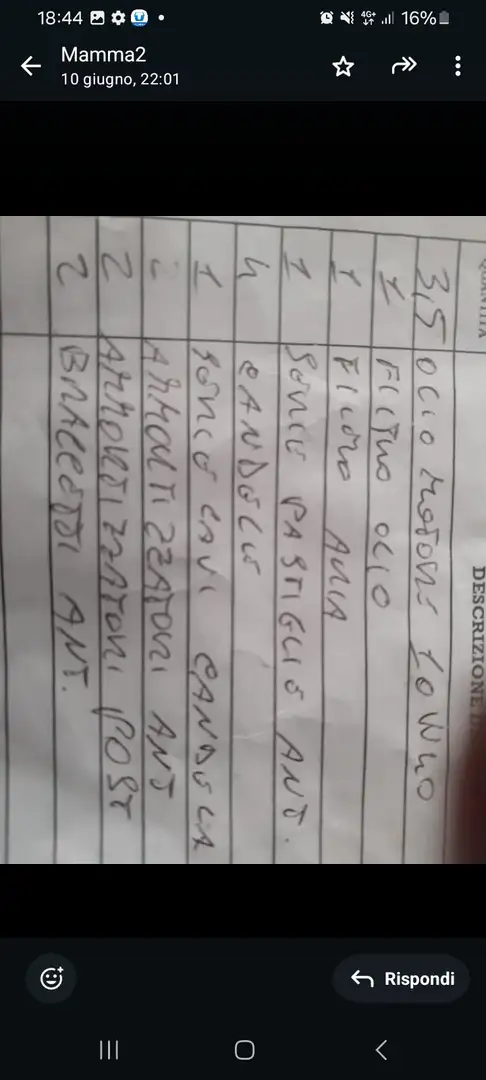 18:44 4G+ 16%
Mamma2
10 giugno, 22:01
QUANTITÀ DESCRIZIONE
3,5 OLIO MOTORE 10W40
1 FILTRO OLIO
1 FILTRO ARIA
1 SERIE PASTIGLIE ANT.
4 CANDELE
1 SERIE CAVI CANDELA
2 AMMORTIZZATORI ANT
2 AMMORTIZZATORI POST
2 BRACCETTI ANT.
Rispondi